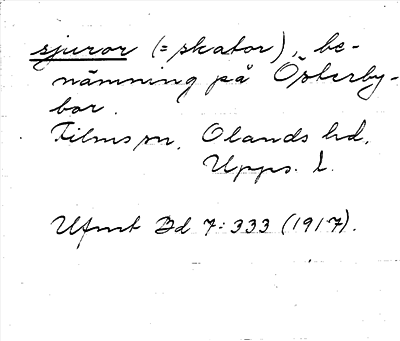 sjuror (= skator), be-
nämning på Österby-
bor.
Films sn. Olands hd.
Upps. l.
Ufmt Bd 7:333 (1917).